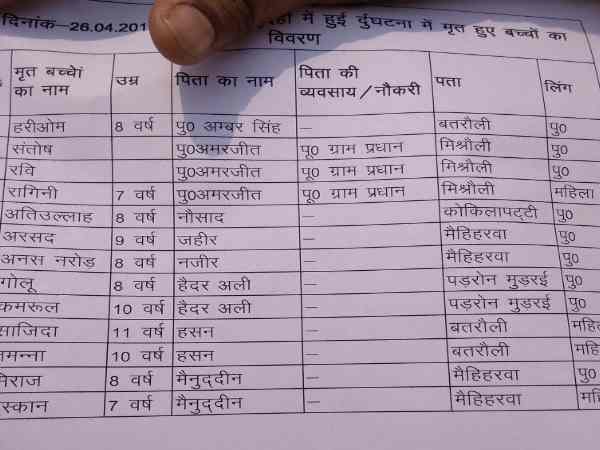 दिनांक–26.04.201 में हुई दुंघटना में मृत हुए बच्चों का
विवरण
मृत बच्चों का नाम उम्र पिता का नाम पिता की व्यवसाय/नौकरी पता लिंग
हरीओम 8 वर्ष पु0 अम्बर सिंह – बतरौली पु0
संतोष पु0अमरजीत पू0 ग्राम प्रधान मिश्रौली पु0
रवि पु0अमरजीत पू0 ग्राम प्रधान मिश्रौली पु0
रागिनी 7 वर्ष पु0अमरजीत पू0 ग्राम प्रधान मिश्रौली महिला
अतिउल्लाह 8 वर्ष नौसाद – कोकिलापट्टी पु0
अरसद 9 वर्ष जहीर – मैहिहरवा पु0
अनस नरोड़ 8 वर्ष नजीर – मैहिहरवा पु0
गोलू 8 वर्ष हैदर अली – पड़रोन मुड़रई पु0
कमरूल 10 वर्ष हैदर अली – पड़रोन मुड़रई पु0
साजिदा 11 वर्ष हसन – बतरौली महि
मन्ना 10 वर्ष हसन – बतरौली महि
मेराज 8 वर्ष मैनुद्दीन – मैहिहरवा पु0
स्कान 7 वर्ष मैनुद्दीन – मैहिहरवा महि